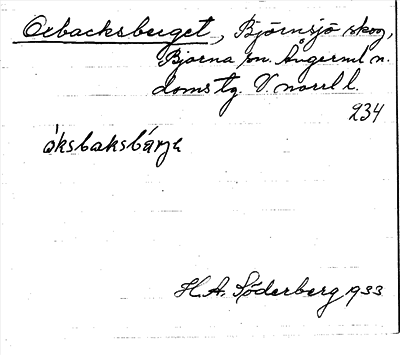 Oxbacksberget, Björnsjö skog,
Björna sn. Ångerml. n.
doms tg. V. norrl l.
234
óksbaksbárjh
H. A. Söderberg 1933